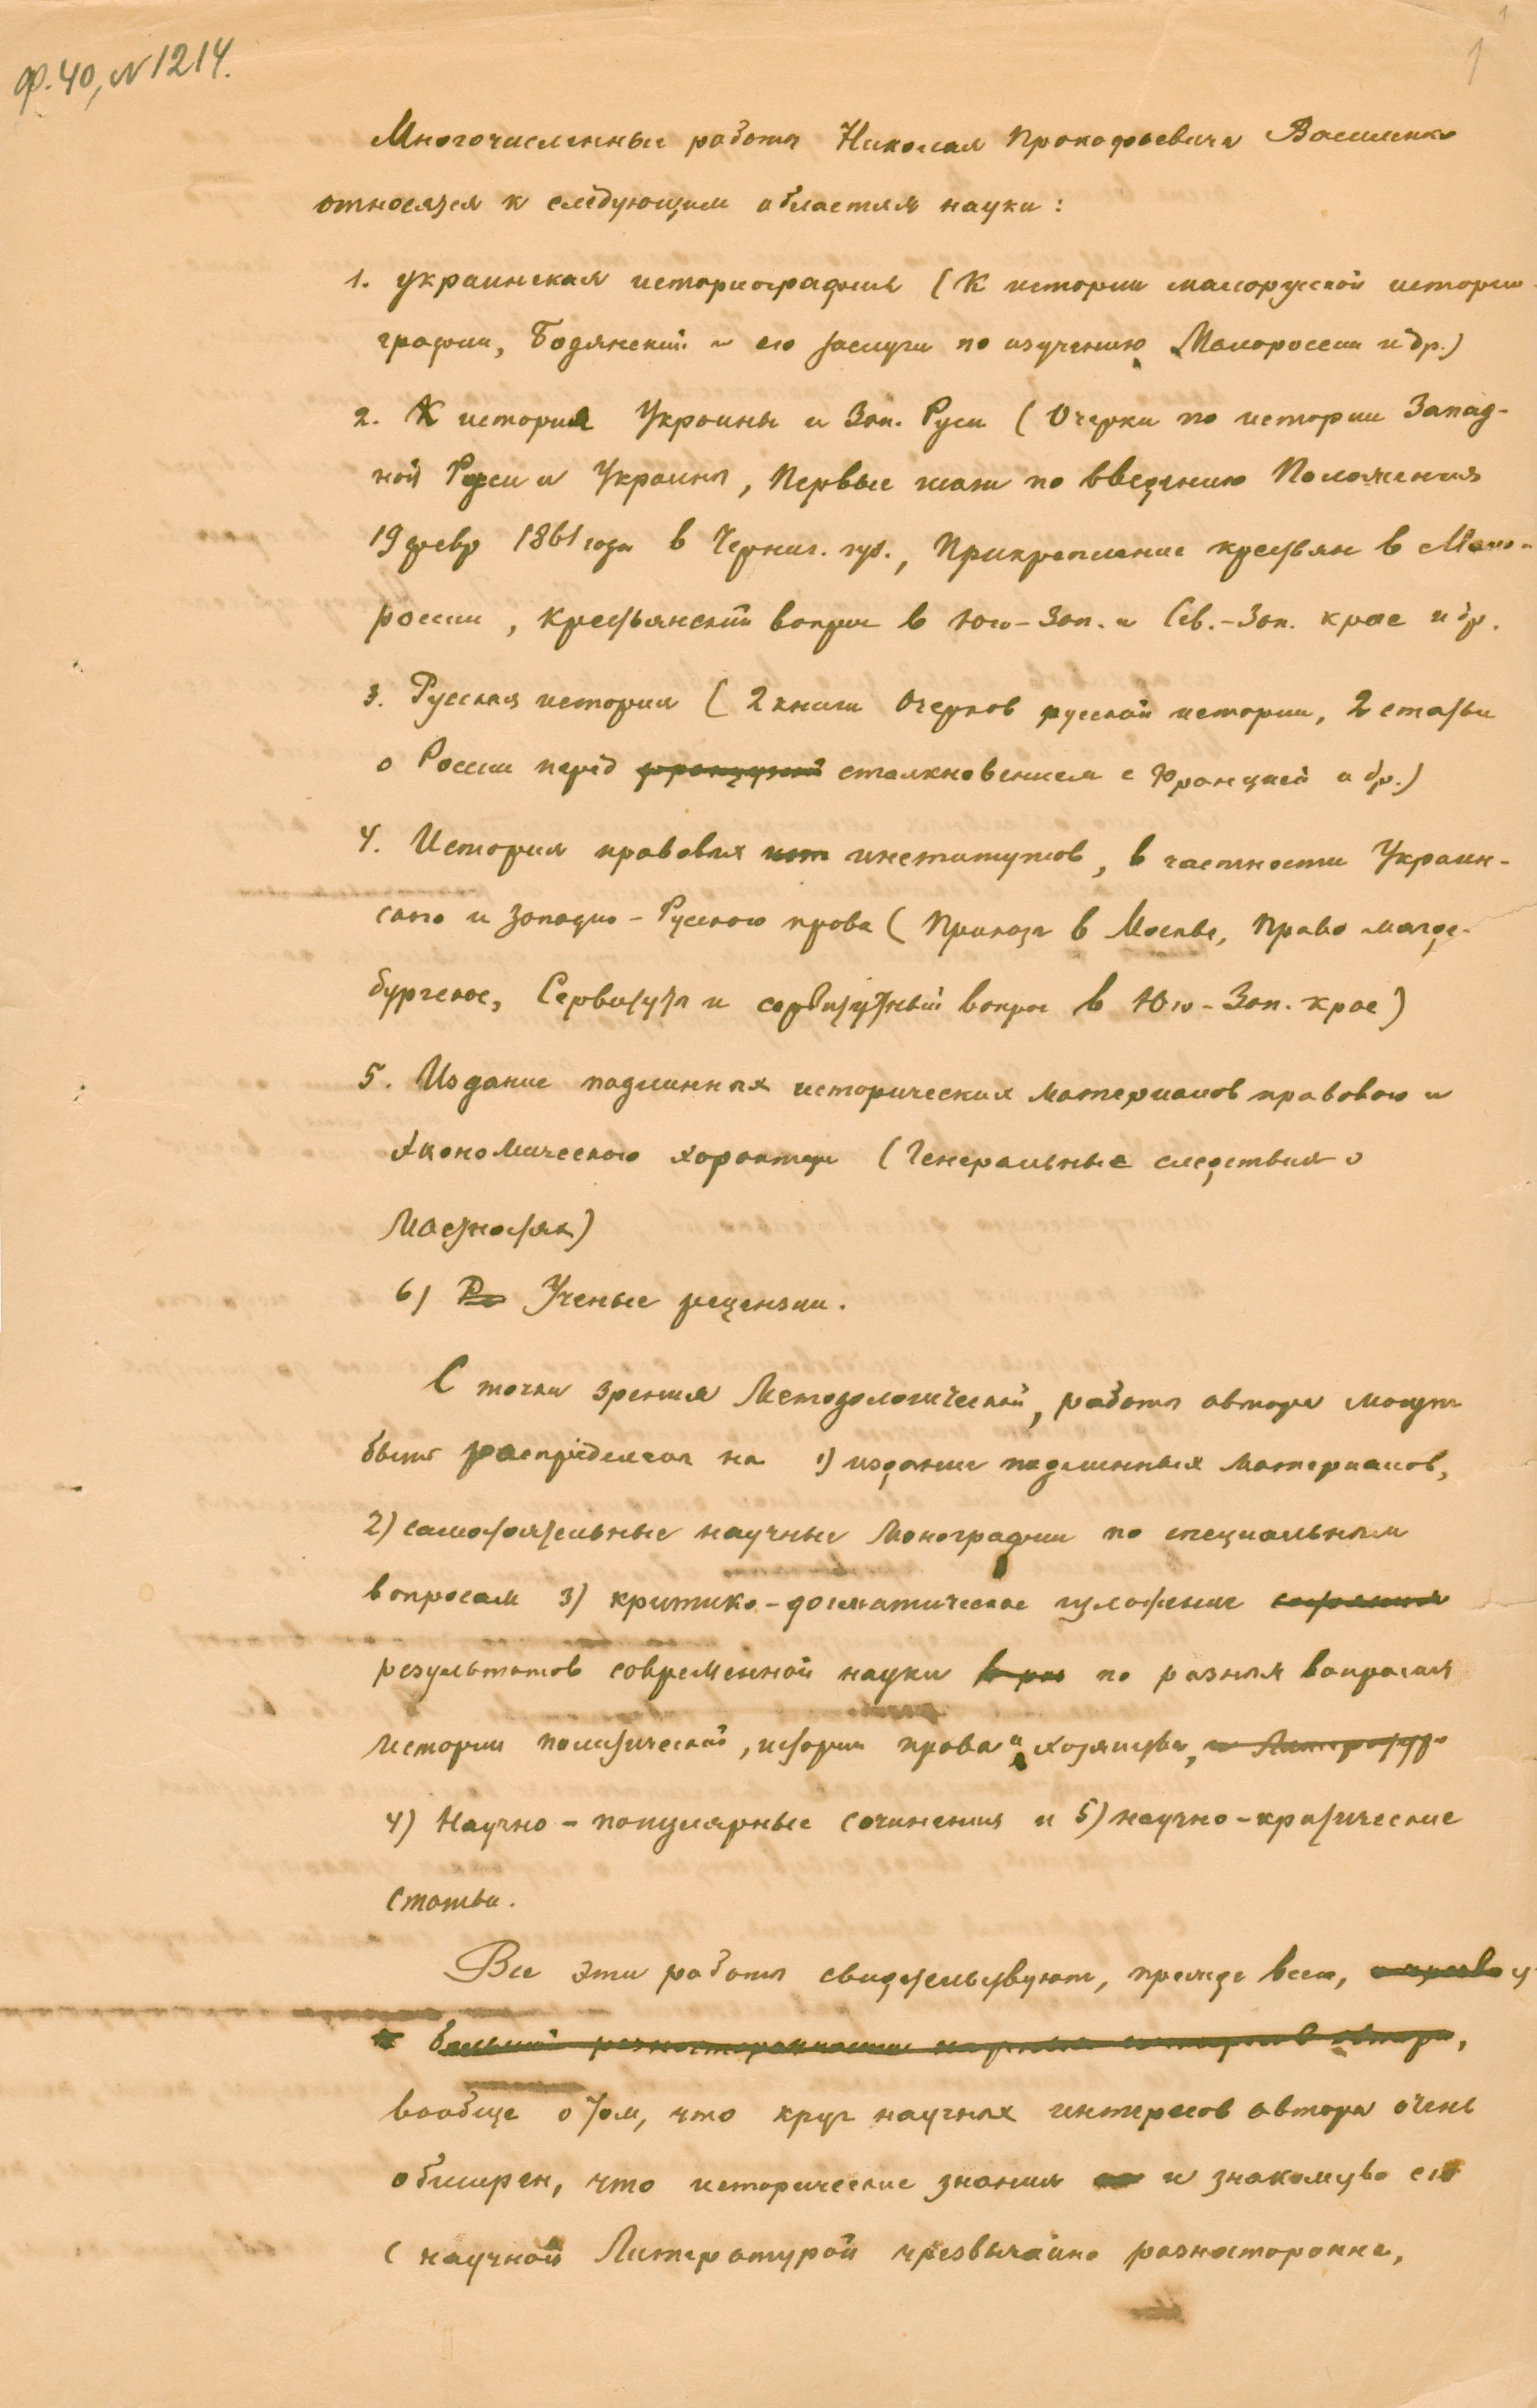 Ф. 40, N 1214.
1
1
Многочисленные работы Николая Прокофьевича Василенко
относятся к следующим областям науки:
1. Украинская историография (К истории малорусской историо-
графии, Бодянский и его заслуги по изучению Малороссии и др.)
2. История Украины и Зап. Руси (Очерки по истории Запад-
ной Руси и Украины, Первые шаги по введению Положения
19 февр 1861 года в Черниг. губ., Прикрепление крестьян в Мало-
россии, крестьянский вопрос в Юго-Зап. и Сев.-Зап. крае и др.
3. Русская история (2 книги Очерков русской истории, 2 статьи
о России перед французской столкновением с Францией и др.)
4. История правовых инст институтов, в частности Украин-
ского и Западно-Русского права (Приказы в Москве, Право магде-
бургское, Сервитуты и сервитутный вопрос в Юго-Зап. крае)
5. Издание подлинных исторических материалов правового и
экономического характера (Генеральные следствия о
маетностях)
6) Ре Ученые рецензии.
С точки зрения методологической, работы автора могут
быть распределены на 1) издание подлинных материалов,
2) самостоятельные научные монографии по специальным
вопросам 3) критико-догматическое изложение состояния
результатов современной науки в раз по разным вопросам
истории политической, истории права и хозяйства, и литературы
4) Научно-популярные сочинения и 5) научно-критические
статьи.
Все эти работы свидетельствуют, прежде всего,
большой разносторонности научных интересов автора,
вообще о том, что круг научных интересов автора очень
обширен, что исторические знания и знакомство его
с научной литературой чрезвычайно разносторонне,